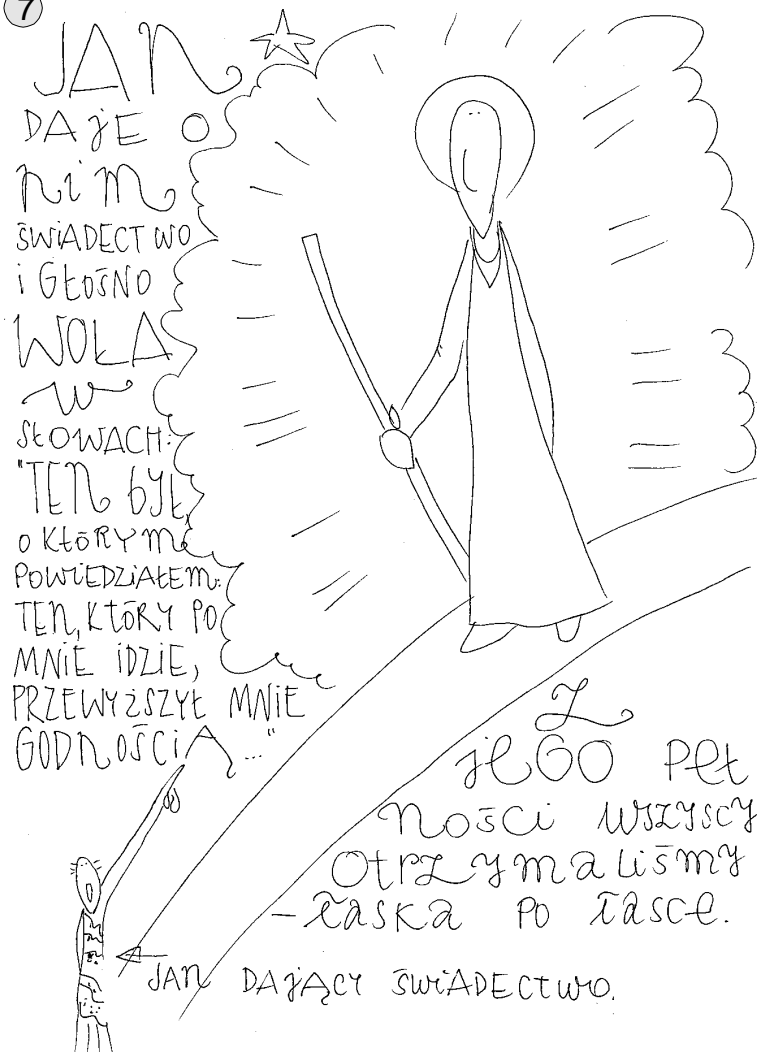 7
JAN
DAJE O
NIM
ŚWIADECTWO
i GŁOŚNO
WOŁA
W
SŁOWACH:
"TEN BYŁ,
O KTÓRYM
POWIEDZIAŁEM:
TEN, KTÓRY PO
MNIE IDZIE,
PRZEWYŻSZYŁ MNIE
GODNOŚCIĄ..."
Z
JEGO PEŁ
NOŚCI WSZYSCY
OTRZYMALIŚMY
- ŁASKA PO ŁASCE.
JAN DAJĄCY ŚWIADECTWO.